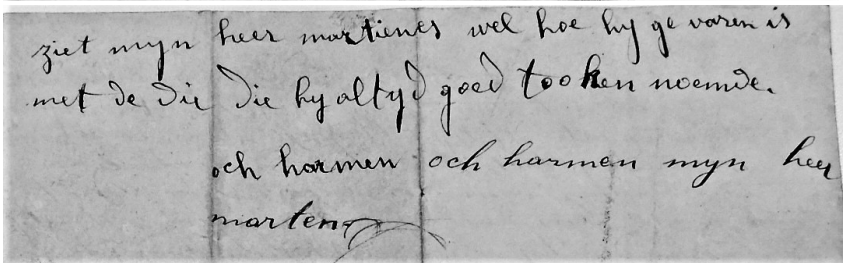 ziet myn heer martienes wel hoe hy ge varen is
met de die die hy altyd goed tooken noemde.
och harmen och harmen myn heer
marten